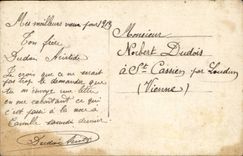 Mes meilleurs vœux pour 1913
Ton frère
Dudon Aristide
Je crois que ce ne serait
pas trop te demander que
tu m'envoye une lettre
en me racontant ce qui
c'est passé à la noce à
Camille samedi dernier
Dudon
Monsieur
Norbert Dudois
à St Cassien par Loudun
(Vienne)